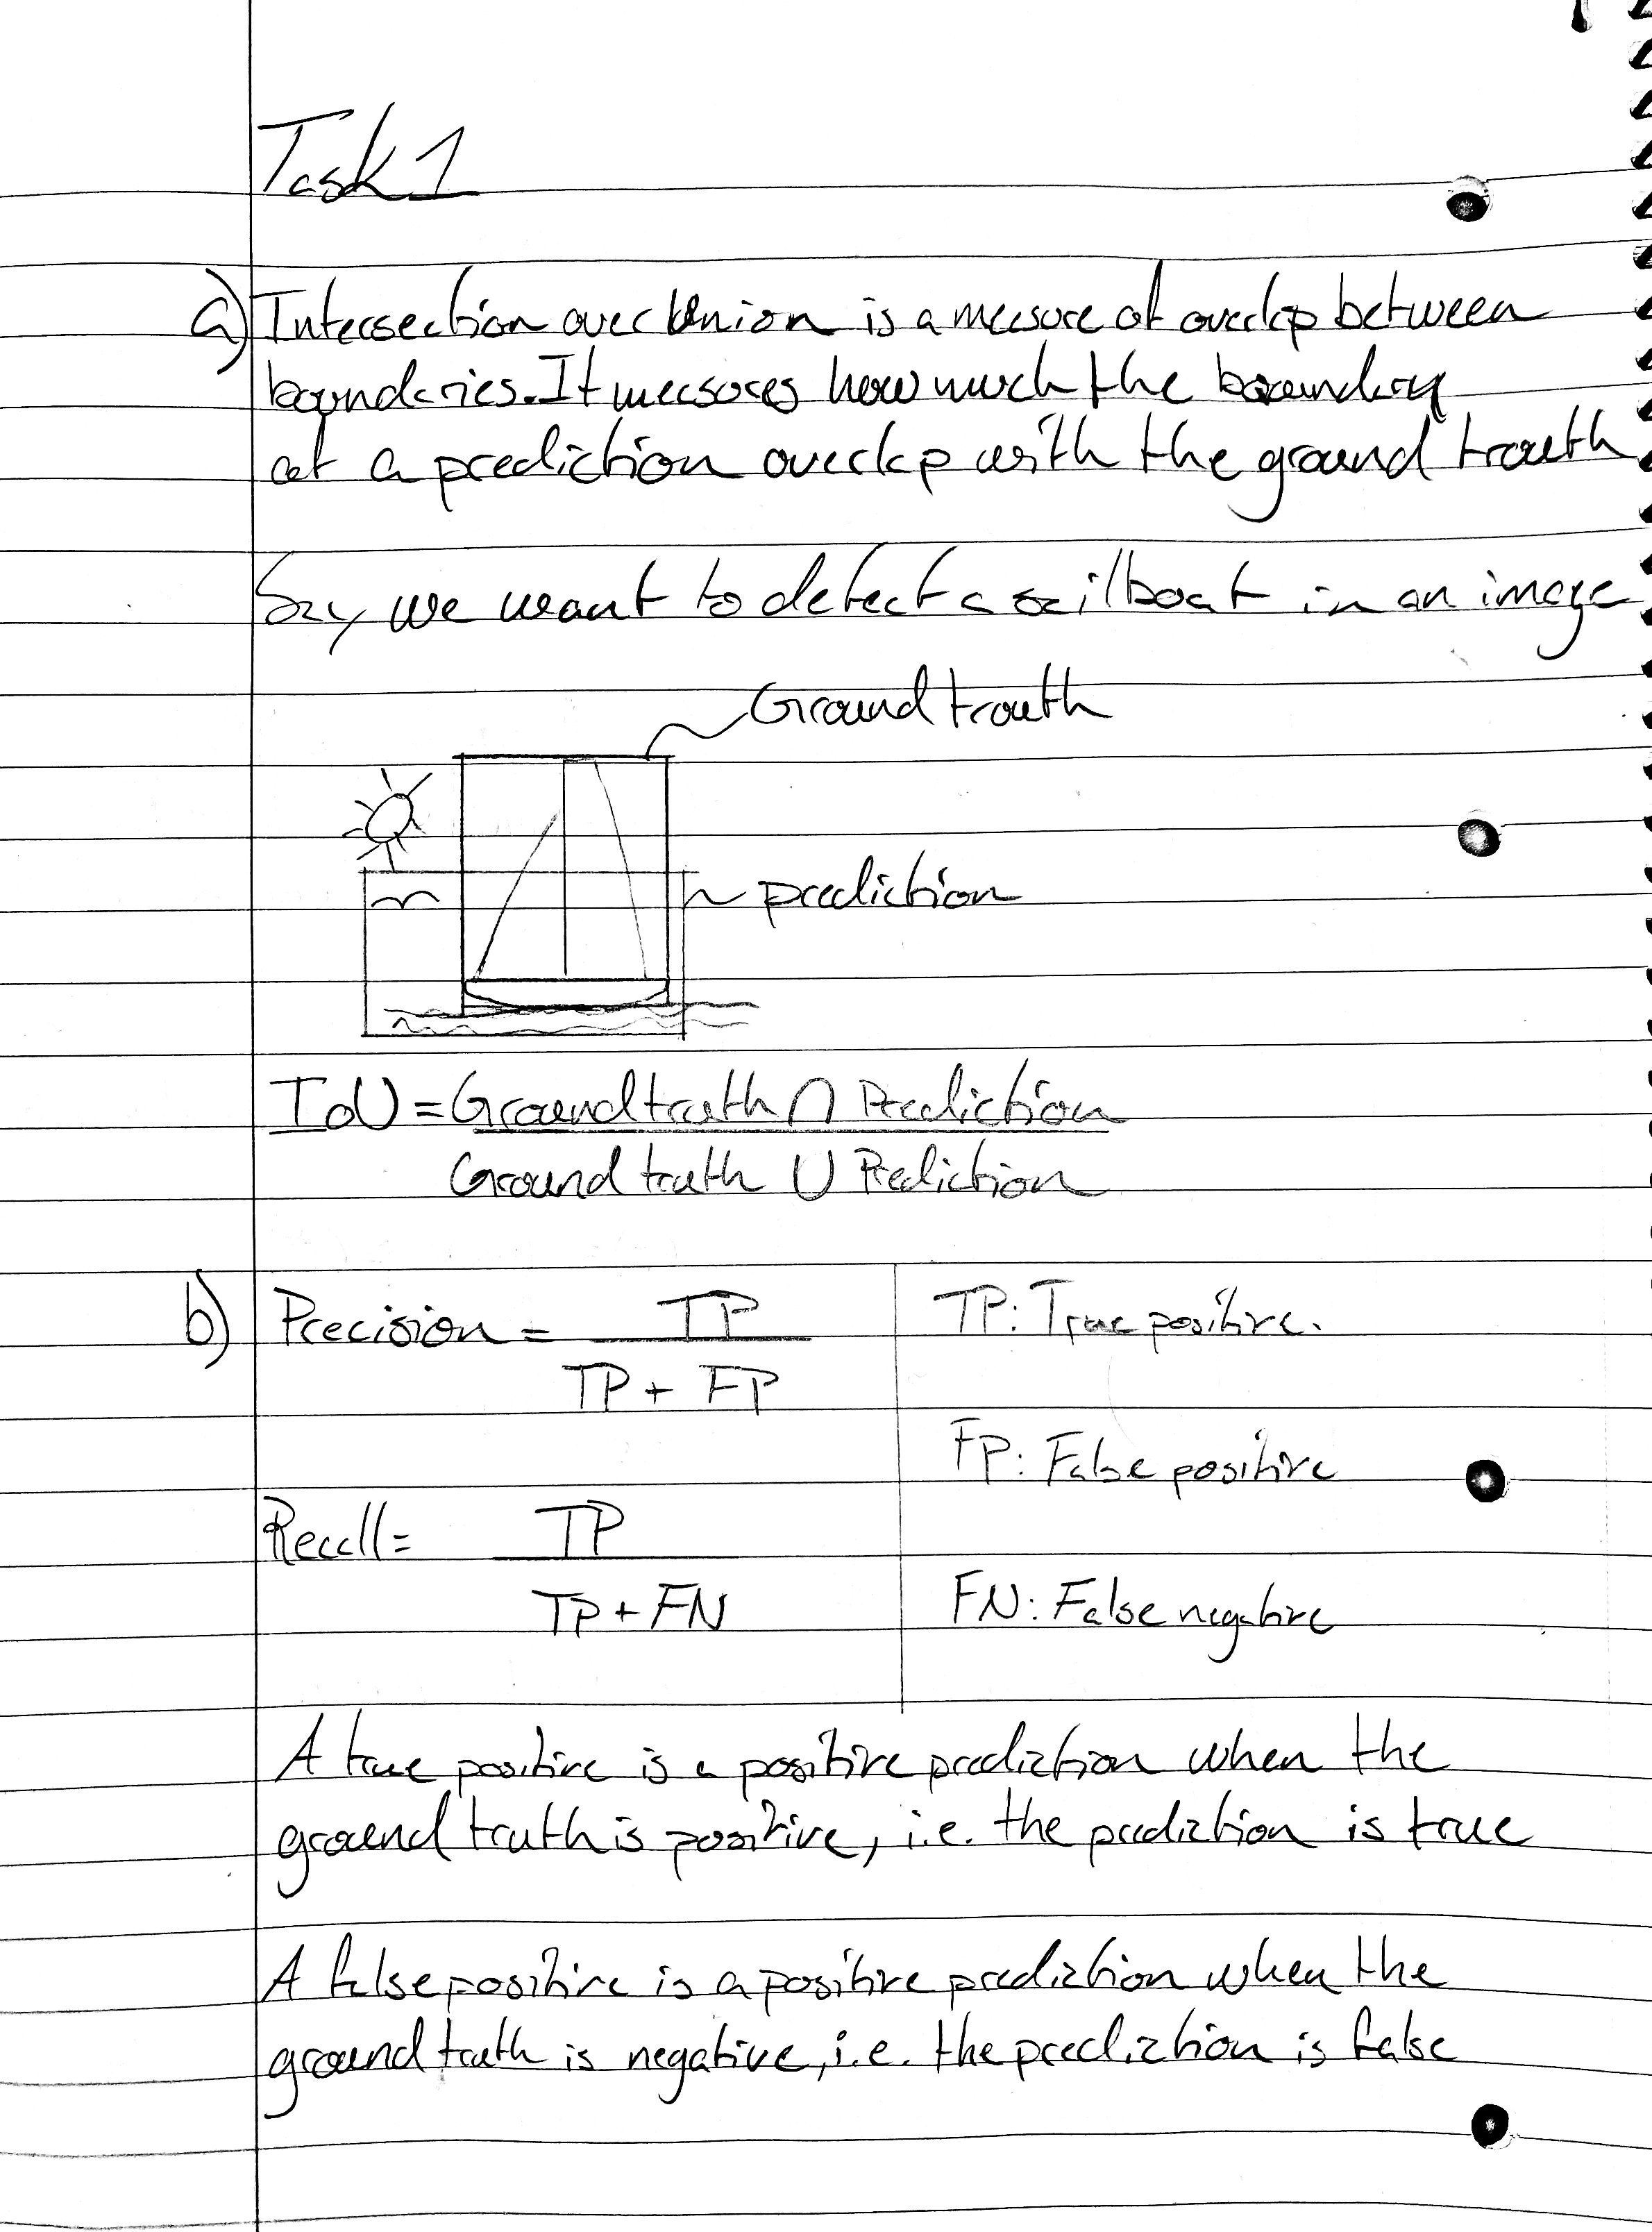 Task 1
a) Intersection over Union is a measure of overlap between
boundaries. It measures how much the boundary
of a prediction overlap with the ground trouth
Say we want to detect a sailboat in an image
Ground trouth
prediction
IoU = Ground truth ∩ Prediction
Ground truth ∪ Prediction
b) Precision = TP
TP + FP
TP: True positive.
FP: False positive
Recall = TP
TP + FN
FN: False negative
A true positive is a positive prediction when the
ground truth is positive, i.e. the prediction is true
A false positive is a positive prediction when the
ground truth is negative, i.e. the prediction is false